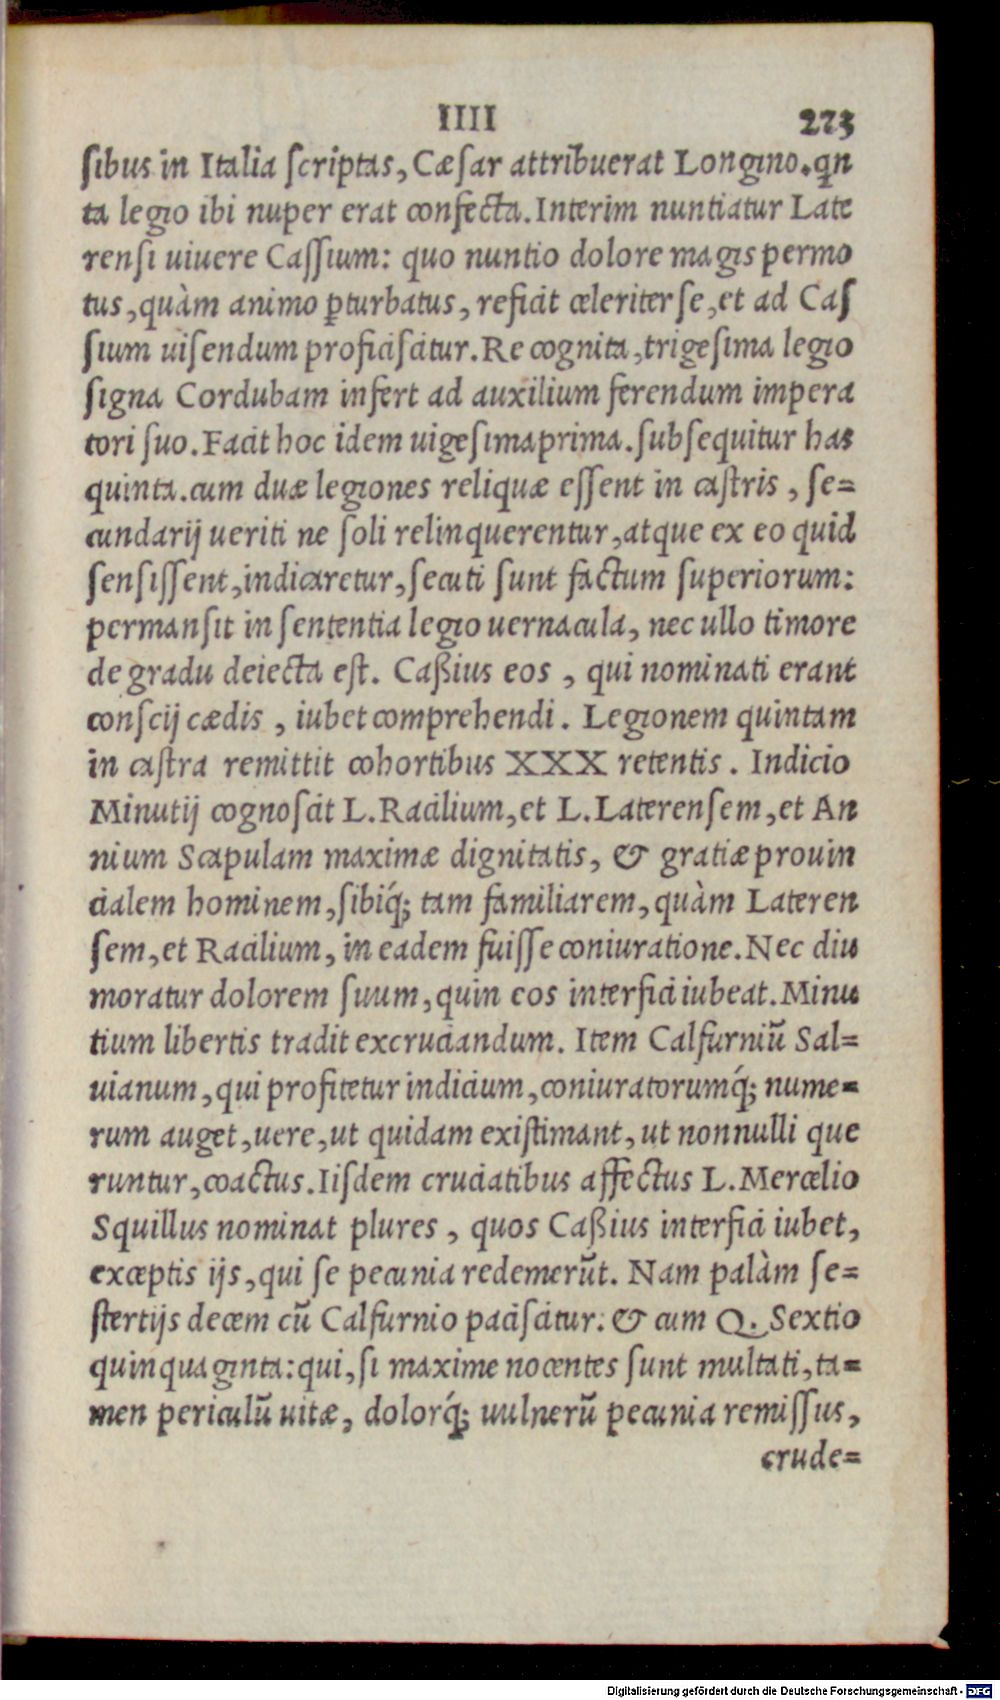 IIII 273
sibus in Italia scriptas, Cæsar attribuerat Longino. qn
ta legio ibi nuper erat confecta. Interim nuntiatur Late
rensi uiuere Cassium: quo nuntio dolore magis permo
tus, quàm animo ꝑturbatus, reficit celeriter se, et ad Cas
sium uisendum proficiscitur. Re cognita, trigesima legio
signa Cordubam infert ad auxilium ferendum impera
tori suo. Facit hoc idem uigesimaprima. subsequitur has
quinta. cum duæ legiones reliquæ essent in castris, se=
cundarij ueriti ne soli relinquerentur, atque ex eo quid
sensissent, indicaretur, secuti sunt factum superiorum:
permansit in sententia legio uernacula, nec ullo timore
de gradu deiecta est. Caßius eos, qui nominati erant
conscij cædis, iubet comprehendi. Legionem quintam
in castra remittit cohortibus XXX retentis. Indicio
Minutij cognoscit L. Racilium, et L. Laterensem, et An
nium Scapulam maximæ dignitatis, & gratiæ prouin
cialem hominem, sibiq́; tam familiarem, quàm Lateren
sem, et Racilium, in eadem fuisse coniuratione. Nec diu
moratur dolorem suum, quin eos interfici iubeat. Minu
tium libertis tradit excruciandum. Item Calfurniũ Sal=
uianum, qui profitetur indicium, coniuratorumq́; nume=
rum auget, uere, ut quidam existimant, ut nonnulli que
runtur, coactus. Iisdem cruciatibus affectus L. Mercelio
Squillus nominat plures, quos Caßius interfici iubet,
exceptis ijs, qui se pecunia redemerũt. Nam palàm se=
stertijs decem cũ Calfurnio paciscitur: & cum Q. Sextio
quinquaginta: qui, si maxime nocentes sunt multati, ta=
men periculũ uitæ, dolorq́; uulnerũ pecunia remissus,
crude=
Digitalisierung gefördert durch die Deutsche Forschungsgemeinschaft - DFG